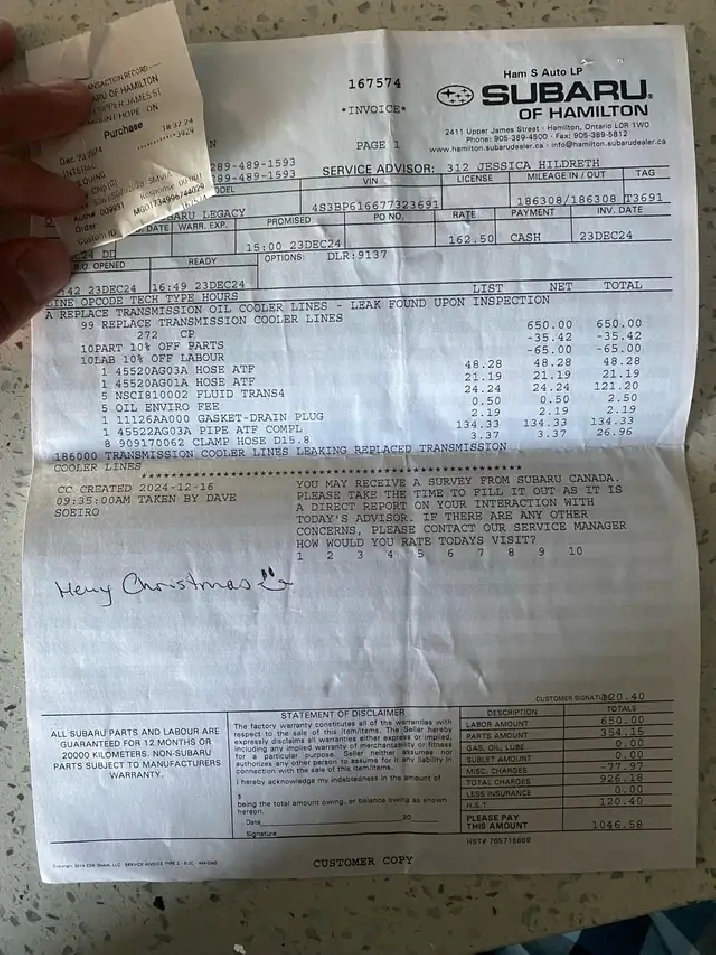 ANSACTION RECORD
ARU OF HAMILTON
UPPER JAMES ST
MOUNT HOPE ON
Purchase
Dec 23 2024
167574
*INVOICE*
PAGE 1
Ham S Auto LP
SUBARU.
OF HAMILTON
2411 Upper James Street · Hamilton, Ontario L0R 1W0
Phone: 905-389-4500 · Fax: 905-389-5812
www.hamilton.subarudealer.ca · info@hamilton.subarudealer.ca
289-489-1593
289-489-1593
SERVICE ADVISOR: 312 JESSICA HILDRETH
VIN LICENSE MILEAGE IN / OUT TAG
4S3BP616677323691 186308/186308 T3691
BARU LEGACY
DATE WARR. EXP. PROMISED PO NO. RATE PAYMENT INV. DATE
15:00 23DEC24 162.50 CASH 23DEC24
R.O. OPENED READY OPTIONS: DLR:9137
:42 23DEC24 16:49 23DEC24
LINE OPCODE TECH TYPE HOURS LIST NET TOTAL
A REPLACE TRANSMISSION OIL COOLER LINES - LEAK FOUND UPON INSPECTION
99 REPLACE TRANSMISSION COOLER LINES
272 CP 650.00 650.00
10PART 10% OFF PARTS -35.42 -35.42
10LAB 10% OFF LABOUR -65.00 -65.00
1 45520AG03A HOSE ATF 48.28 48.28 48.28
1 45520AG01A HOSE ATF 21.19 21.19 21.19
5 NSCI810002 FLUID TRANS4 24.24 24.24 121.20
5 OIL ENVIRO FEE 0.50 0.50 2.50
1 11126AA000 GASKET-DRAIN PLUG 2.19 2.19 2.19
1 45522AG03A PIPE ATF COMPL 134.33 134.33 134.33
8 909170062 CLAMP HOSE D15.8 3.37 3.37 26.96
186000 TRANSMISSION COOLER LINES LEAKING REPLACED TRANSMISSION
COOLER LINES
CC CREATED 2024-12-16
09:35:00AM TAKEN BY DAVE
SOEIRO
YOU MAY RECEIVE A SURVEY FROM SUBARU CANADA.
PLEASE TAKE THE TIME TO FILL IT OUT AS IT IS
A DIRECT REPORT ON YOUR INTERACTION WITH
TODAY'S ADVISOR. IF THERE ARE ANY OTHER
CONCERNS, PLEASE CONTACT OUR SERVICE MANAGER
HOW WOULD YOU RATE TODAYS VISIT?
1 2 3 4 5 6 7 8 9 10
Merry Christmas
ALL SUBARU PARTS AND LABOUR ARE
GUARANTEED FOR 12 MONTHS OR
20000 KILOMETERS. NON-SUBARU
PARTS SUBJECT TO MANUFACTURERS
WARRANTY.
STATEMENT OF DISCLAIMER
The factory warranty constitutes all of the warranties with
respect to the sale of this item/items. The Seller hereby
expressly disclaims all warranties either express or implied,
including any implied warranty of merchantability or fitness
for a particular purpose. Seller neither assumes nor
authorizes any other person to assume for it any liability in
connection with the sale of this item/items.
I hereby acknowledge my indebtedness in the amount of
$
being the total amount owing, or balance owing as shown
hereon.
Date 20
Signature
CUSTOMER SIGNATU 120.40
DESCRIPTION TOTALS
LABOR AMOUNT 650.00
PARTS AMOUNT 354.15
GAS, OIL, LUBE 0.00
SUBLET AMOUNT 0.00
MISC. CHARGES -77.97
TOTAL CHARGES 926.18
LESS INSURANCE 0.00
H.S.T 120.40
PLEASE PAY
THIS AMOUNT 1046.58
CUSTOMER COPY